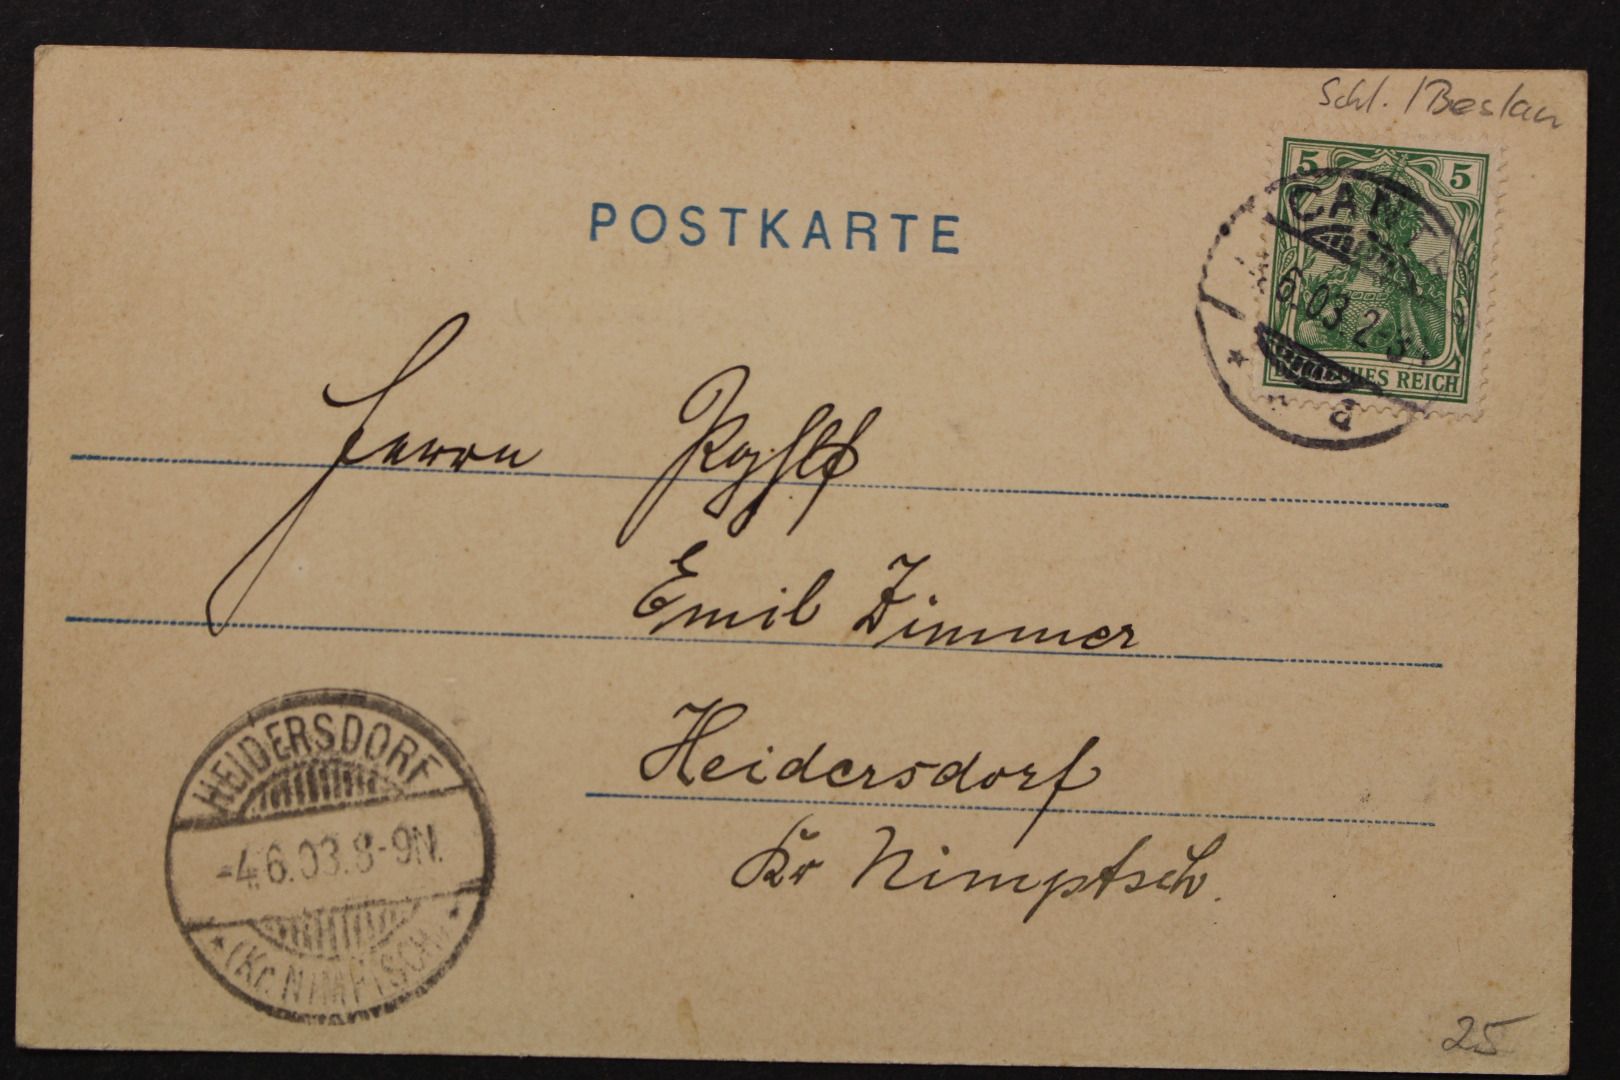 Schl. / Beslau
5 5
CANTH
6.03. 2-3
DEUTSCHES REICH
POSTKARTE
Herrn
Emil Zimmer
Heidersdorf
Kr Nimptsch.
HEIDERSDORF
-4.6.03.8-9N.
(Kr. NIMPTSCH)
25